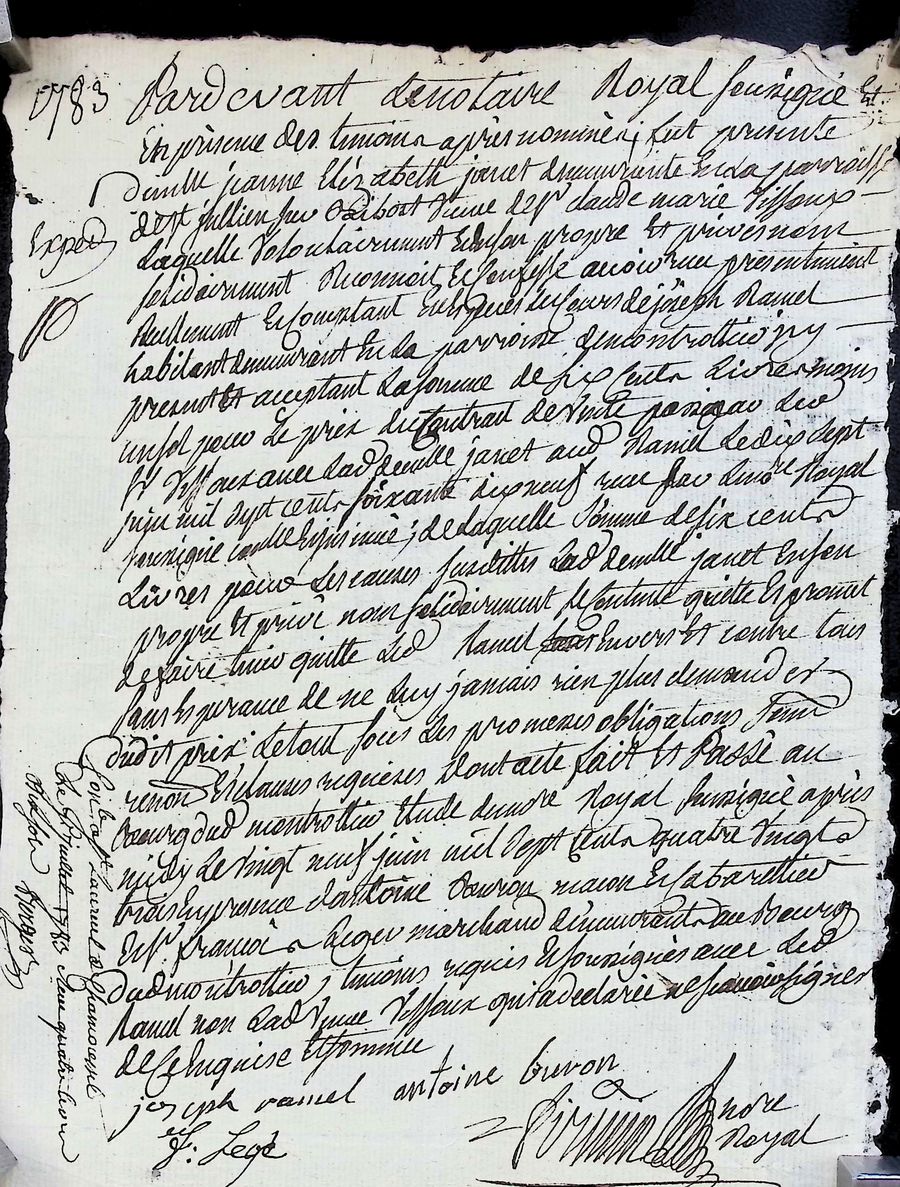 1783
Pardevant le notaire Royal soussigné Et
En présence des temoins après nommés; fut présente
demlle jeanne Elizabeth janet demeurante En la parroisse
de st jullien sur veuve de Sr claude marie Tissoux
Laquelle volontairement En son propre Et privé nom
solidairement Reconnoit Et Confesse avoir reçu présentement
Reellement Et Comptant En Especes de Cours de joseph Ramel
habitant demeurant En la parroisse de montrottier icy
present Et acceptant La somme de six Cents Livres moins
un sol pour Le prix du Contrat de vente passé par Led
Sr Tissoux avec Lad demlle janet aud Ramel Le dix sept
juin mil sept cents soixante dix neuf reçu par Le nore Royal
soussigné; de Laquelle somme de six cents
Livres pour Les causes susdittes Lad demlle janet En son
propre Et privé nom solidairement se Contente quitte Et promet
de faire tenir quitte Led Ramel Envers Et contre tous
sans Esperance de ne Luy jamais rien plus demander
dudit prix; Le tout sous Les promesses obligations
renon Et clauses requises dont acte fait Et Passé au
Bourg dud montrottier Etude du nore Royal soussigné après
midy Le vingt neuf juin mil sept Cents quatre vingt
trois En presence d'antoine Buvon macon Et Cabarettier
Et Sr françois Leger marchand demeurants au Bourg
dud montrottier, temoins requis Et soussignés avec Led
Ramel non Lad veuve Tissoux qui a declarée ne sçavoir signer
de Ce Enquise Et sommée
joseph ramel antoine buvon
f: Legé
nore
Royal
Exped
Con. à St Laurent de Chamousset
Le juillet 1783 Reçu quatre livres